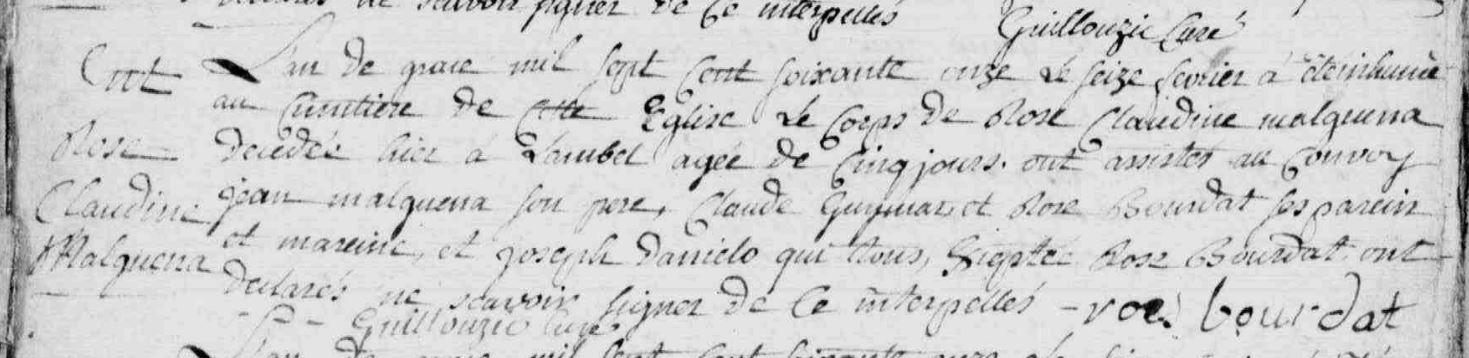 de scavoir signer de ce interpellés Guillouzic Curé
Ent L'an de grace mil sept cent soixante onze le seize fevrier a ête inhumèe
au cimitiere de cette Eglise le corps de Rose Claudine malquena
Rose decedée hier a Lambel agée de cinq jours. ont assistés au convoy
Claudine jean malquena son pere, Claude Guymar, et Rose Bourdat ses parein
Malquena et mareine, et joseph Danielo qui tous, Exeptée Rose Bourdat ont
declarés ne scavoir signer de ce interpellés - roe bourdat
Guillouzic curé
L'an de grace mil sept cent soixante onze le